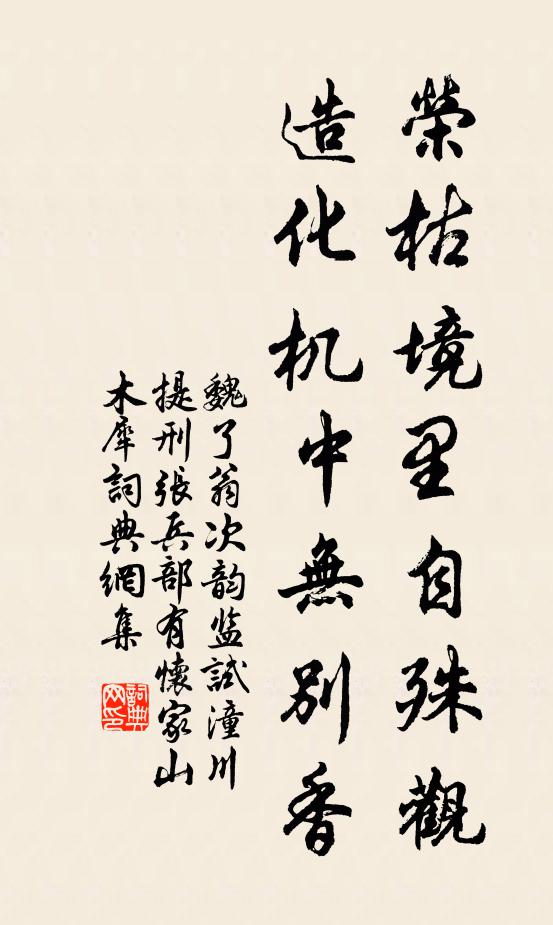 榮枯境里自殊觀
造化机中無別香
魏了翁次韵监試潼川
提刑張兵部有懷家山
木犀詞典網集
詞典
网印